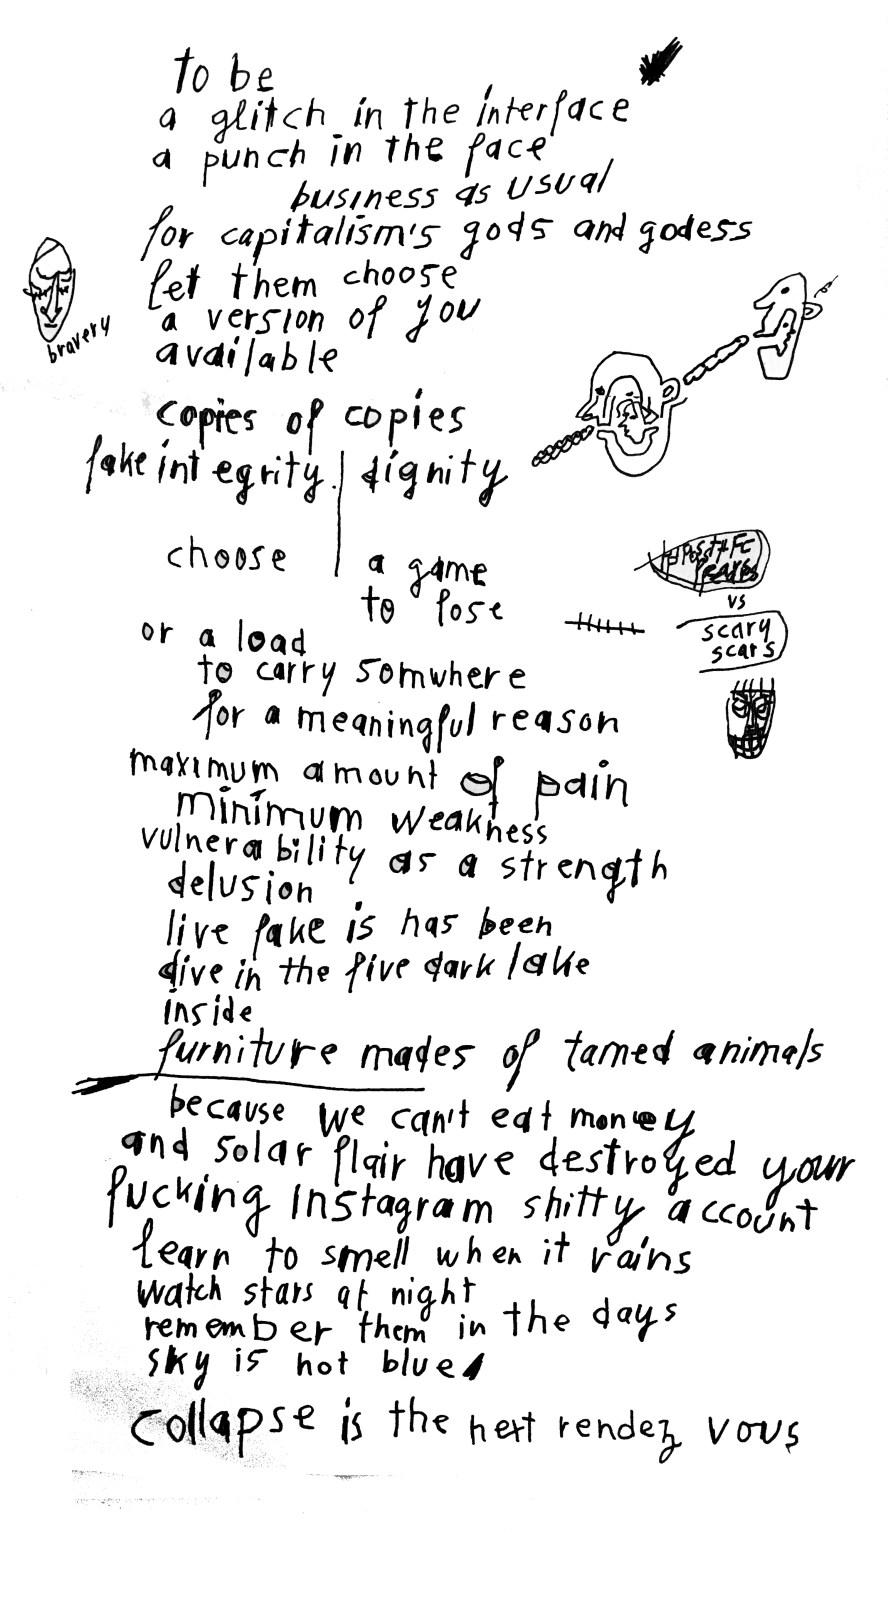 to be
a glitch in the interface
a punch in the face
business as usual
for capitalism's gods and godess
let them choose
a version of you
available
bravery
copies of copies
fake integrity. dignity
choose a game
to lose
vs
scary
scars
or a load
to carry somwhere
for a meaningful reason
maximum amount of pain
minimum weakness
vulnerability as a strength
delusion
live fake is has been
dive in the five dark lake
inside
furniture mades of tamed animals
because we can't eat money
and solar flair have destroyed your
fucking instagram shitty account
learn to smell when it rains
watch stars at night
remember them in the days
sky is not blue
collapse is the next rendez vous